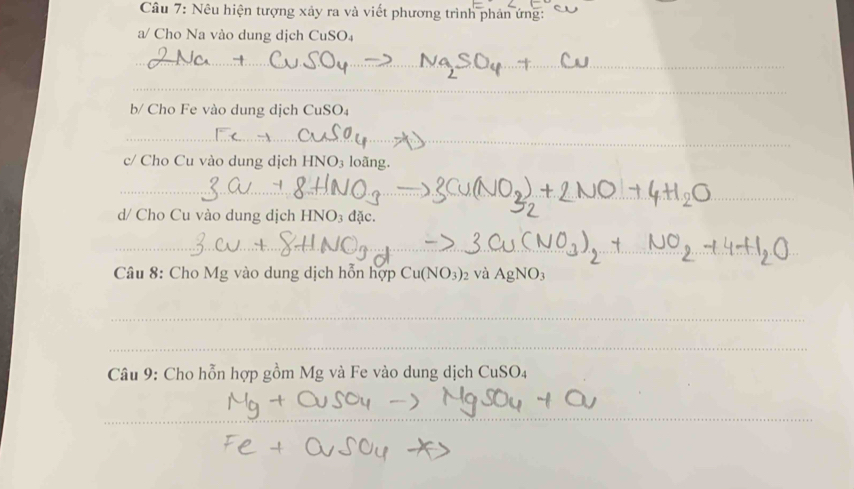 Câu 7: Nêu hiện tượng xảy ra và viết phương trình phản ứng: Cu
a/ Cho Na vào dung dịch CuSO₄
2Na + CuSO₄ -> Na₂SO₄ + Cu
b/ Cho Fe vào dung dịch CuSO₄
Fe + CuSO₄ -×>
c/ Cho Cu vào dung dịch HNO₃ loãng.
3Cu + 8HNO₃ -> 3Cu(NO₃)₂ + 2NO + 4H₂O
d/ Cho Cu vào dung dịch HNO₃ đặc.
3Cu + 8HNO₃ đ -> 3Cu(NO₃)₂ + NO₂ + 4H₂O
Câu 8: Cho Mg vào dung dịch hỗn hợp Cu(NO₃)₂ và AgNO₃
Câu 9: Cho hỗn hợp gồm Mg và Fe vào dung dịch CuSO₄
Mg + CuSO₄ -> MgSO₄ + Cu
Fe + CuSO₄ -×>